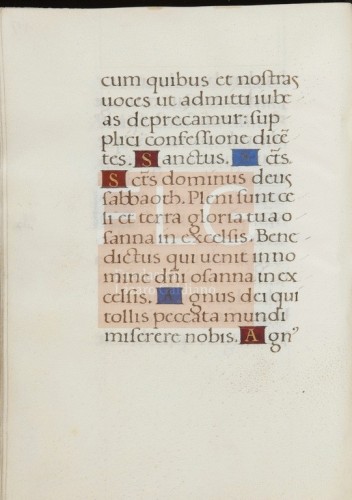 cum quibus et nostras
uoces ut admitti iube
as deprecamur: sup
plici confessione dicẽ
tes. Sanctus. Sc̃ts.
Sc̃ts dominus deus
sabbaoth. Pleni sunt ce
li et terra gloria tua o
sanna in excelsis. Bene
dictus qui uenit in no
mine dñi osanna in ex
celsis. Agnus dei qui
tollis peccata mundi
miserere nobis. Agn᾽